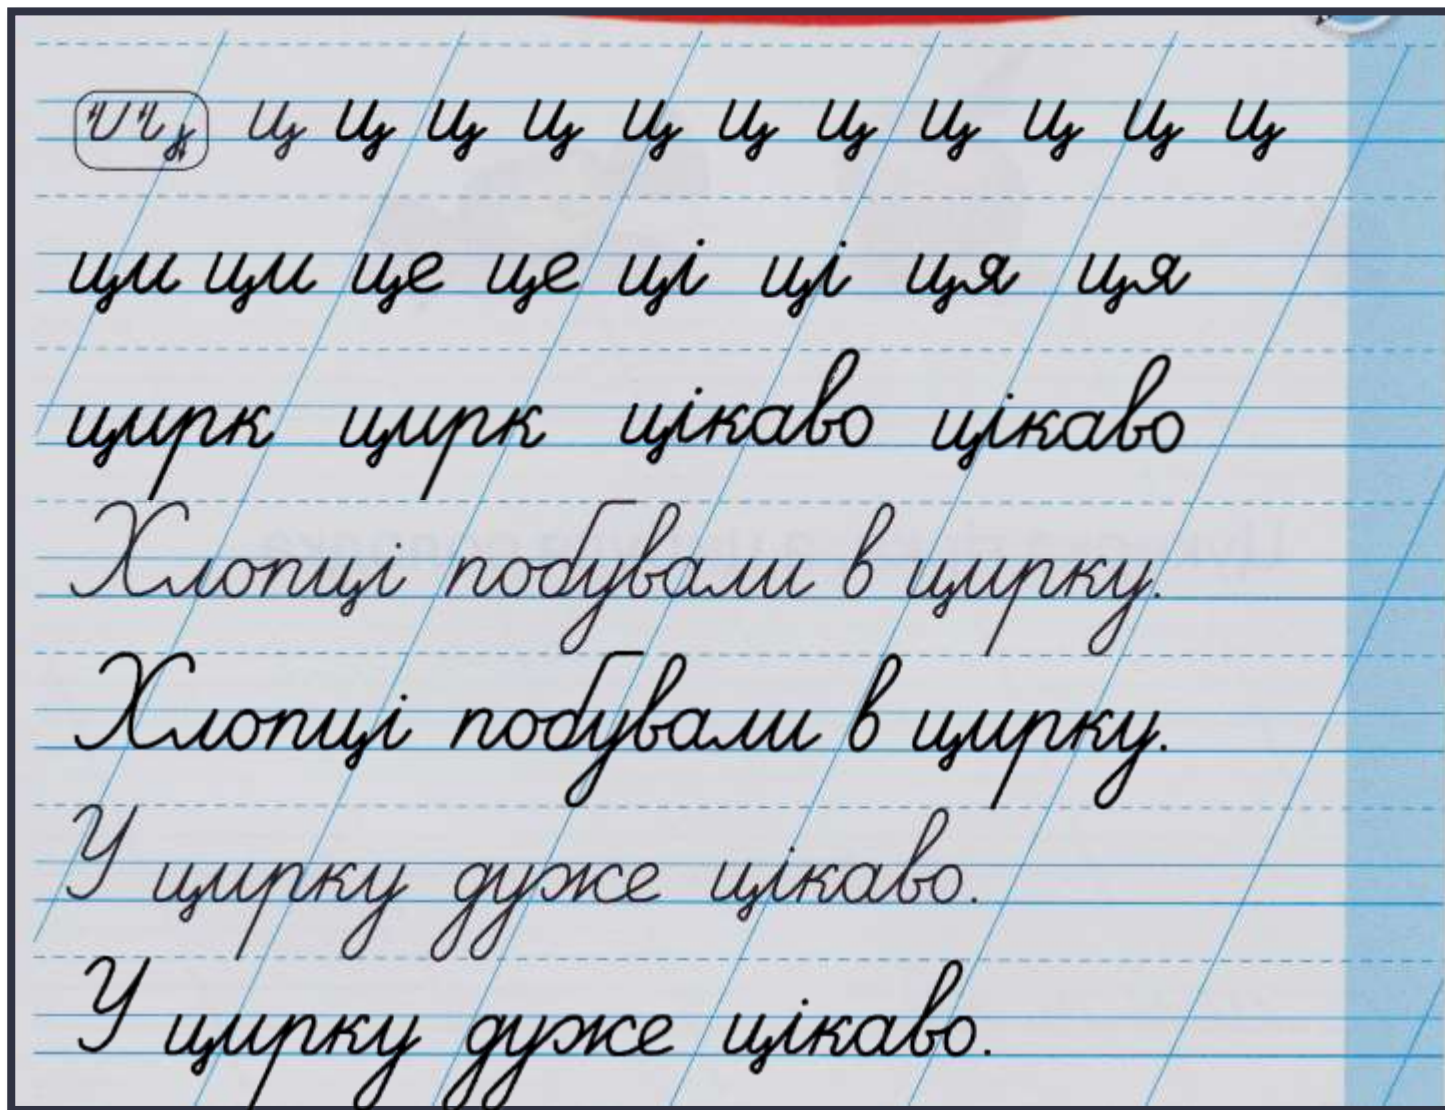 ц ц ц ц ц ц ц ц ц ц ц
ци ци це це ці ці ця ця
цирк цирк цікаво цікаво
Хлопці побували в цирку.
Хлопці побували в цирку.
У цирку дуже цікаво.
У цирку дуже цікаво.